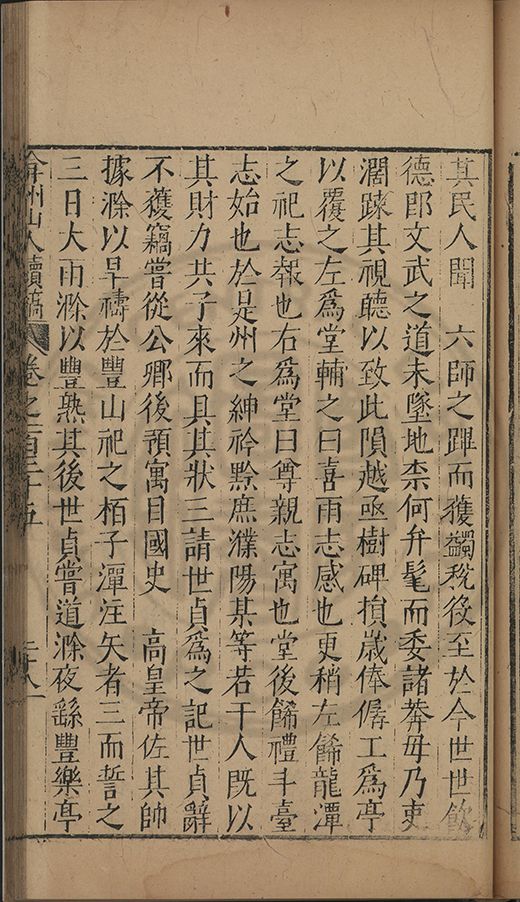 其民人聞　六師之蹕而獲蠲稅後至於今世世飲
德郎文武之道未墜地柰何弁髦而委諸莽毋乃吏
濶踈其視聽以致此隕越亟樹碑捐歲俸僝工爲亭
以覆之左爲堂輔之曰喜雨志感也更稍左餙龍潭
之祀志報也右爲堂曰尊親志寓也堂後餙禮斗臺
志始也於是州之紳衿黔庶濮陽某等若干人既以
其財力共子來而具其狀三請世貞爲之記世貞辭
不獲竊嘗從公卿後預寓目國史　高皇帝佐其帥
據滁以旱禱於豐山祀之栢子潭注矢者三而誓之
三日大雨滁以豐熟其後世貞嘗道滁夜繇豐樂亭
弇州山人續稿　卷之一百二十五　二十八